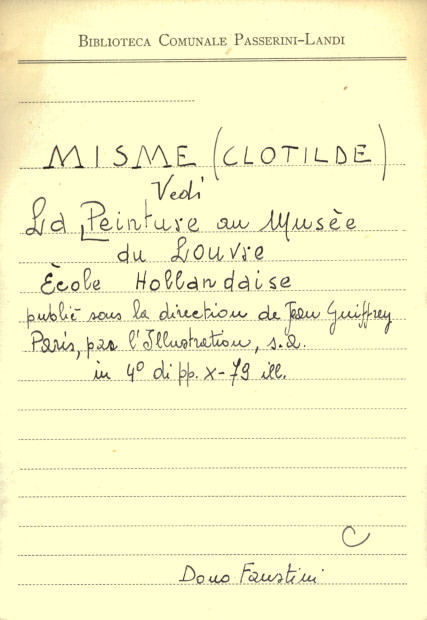 BIBLIOTECA COMUNALE PASSERINI-LANDI
MISME (CLOTILDE)
Vedi
La Peinture au Musèe
du Louvre
École Hollandaise
publié sous la direction de Jean Guiffrey
Paris, par l'Illustration, s.a.
in 4º di pp. X-79 ill.
C
Dono Faustini